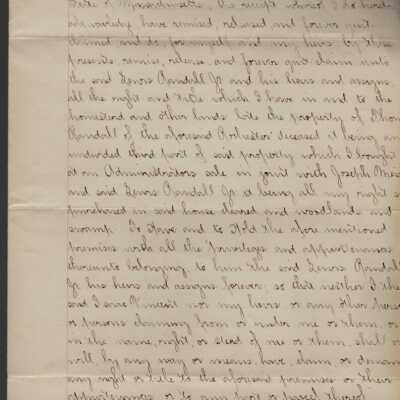 State of Massachusetts, the receipt whereof I do hereby
acknowledge have remised, released and forever quit
claimed and do, for myself and my heirs, by these
presents, remise, release, and forever quit claim unto
the said Lewis Randall Jr and his heirs and assigns
all the right and title which I have in and to the
homestead and other lands late the property of
Randall of the aforesaid Rochester deceased it being an
undivided third part of said property which I bought
at an Administrators sale in joint with Joseph
and said Lewis Randall Jr it being all my right so
purchased in said house cleared and woodlands and
swamp. To Have and to Hold the afore mentioned
premises with all the privileges and appurtenances
thereunto belonging to him the said Lewis Randall
Jr his heirs and assigns forever; so that neither I the
said Isaac Vincent nor my heirs or any other person
or persons claiming from or under me or them, or
in the name, right, or stead of me or them shall or
will, by any way or means have, claim or demand
any right or title to the aforesaid premises or their
appurtenances or to any part or parcel thereof